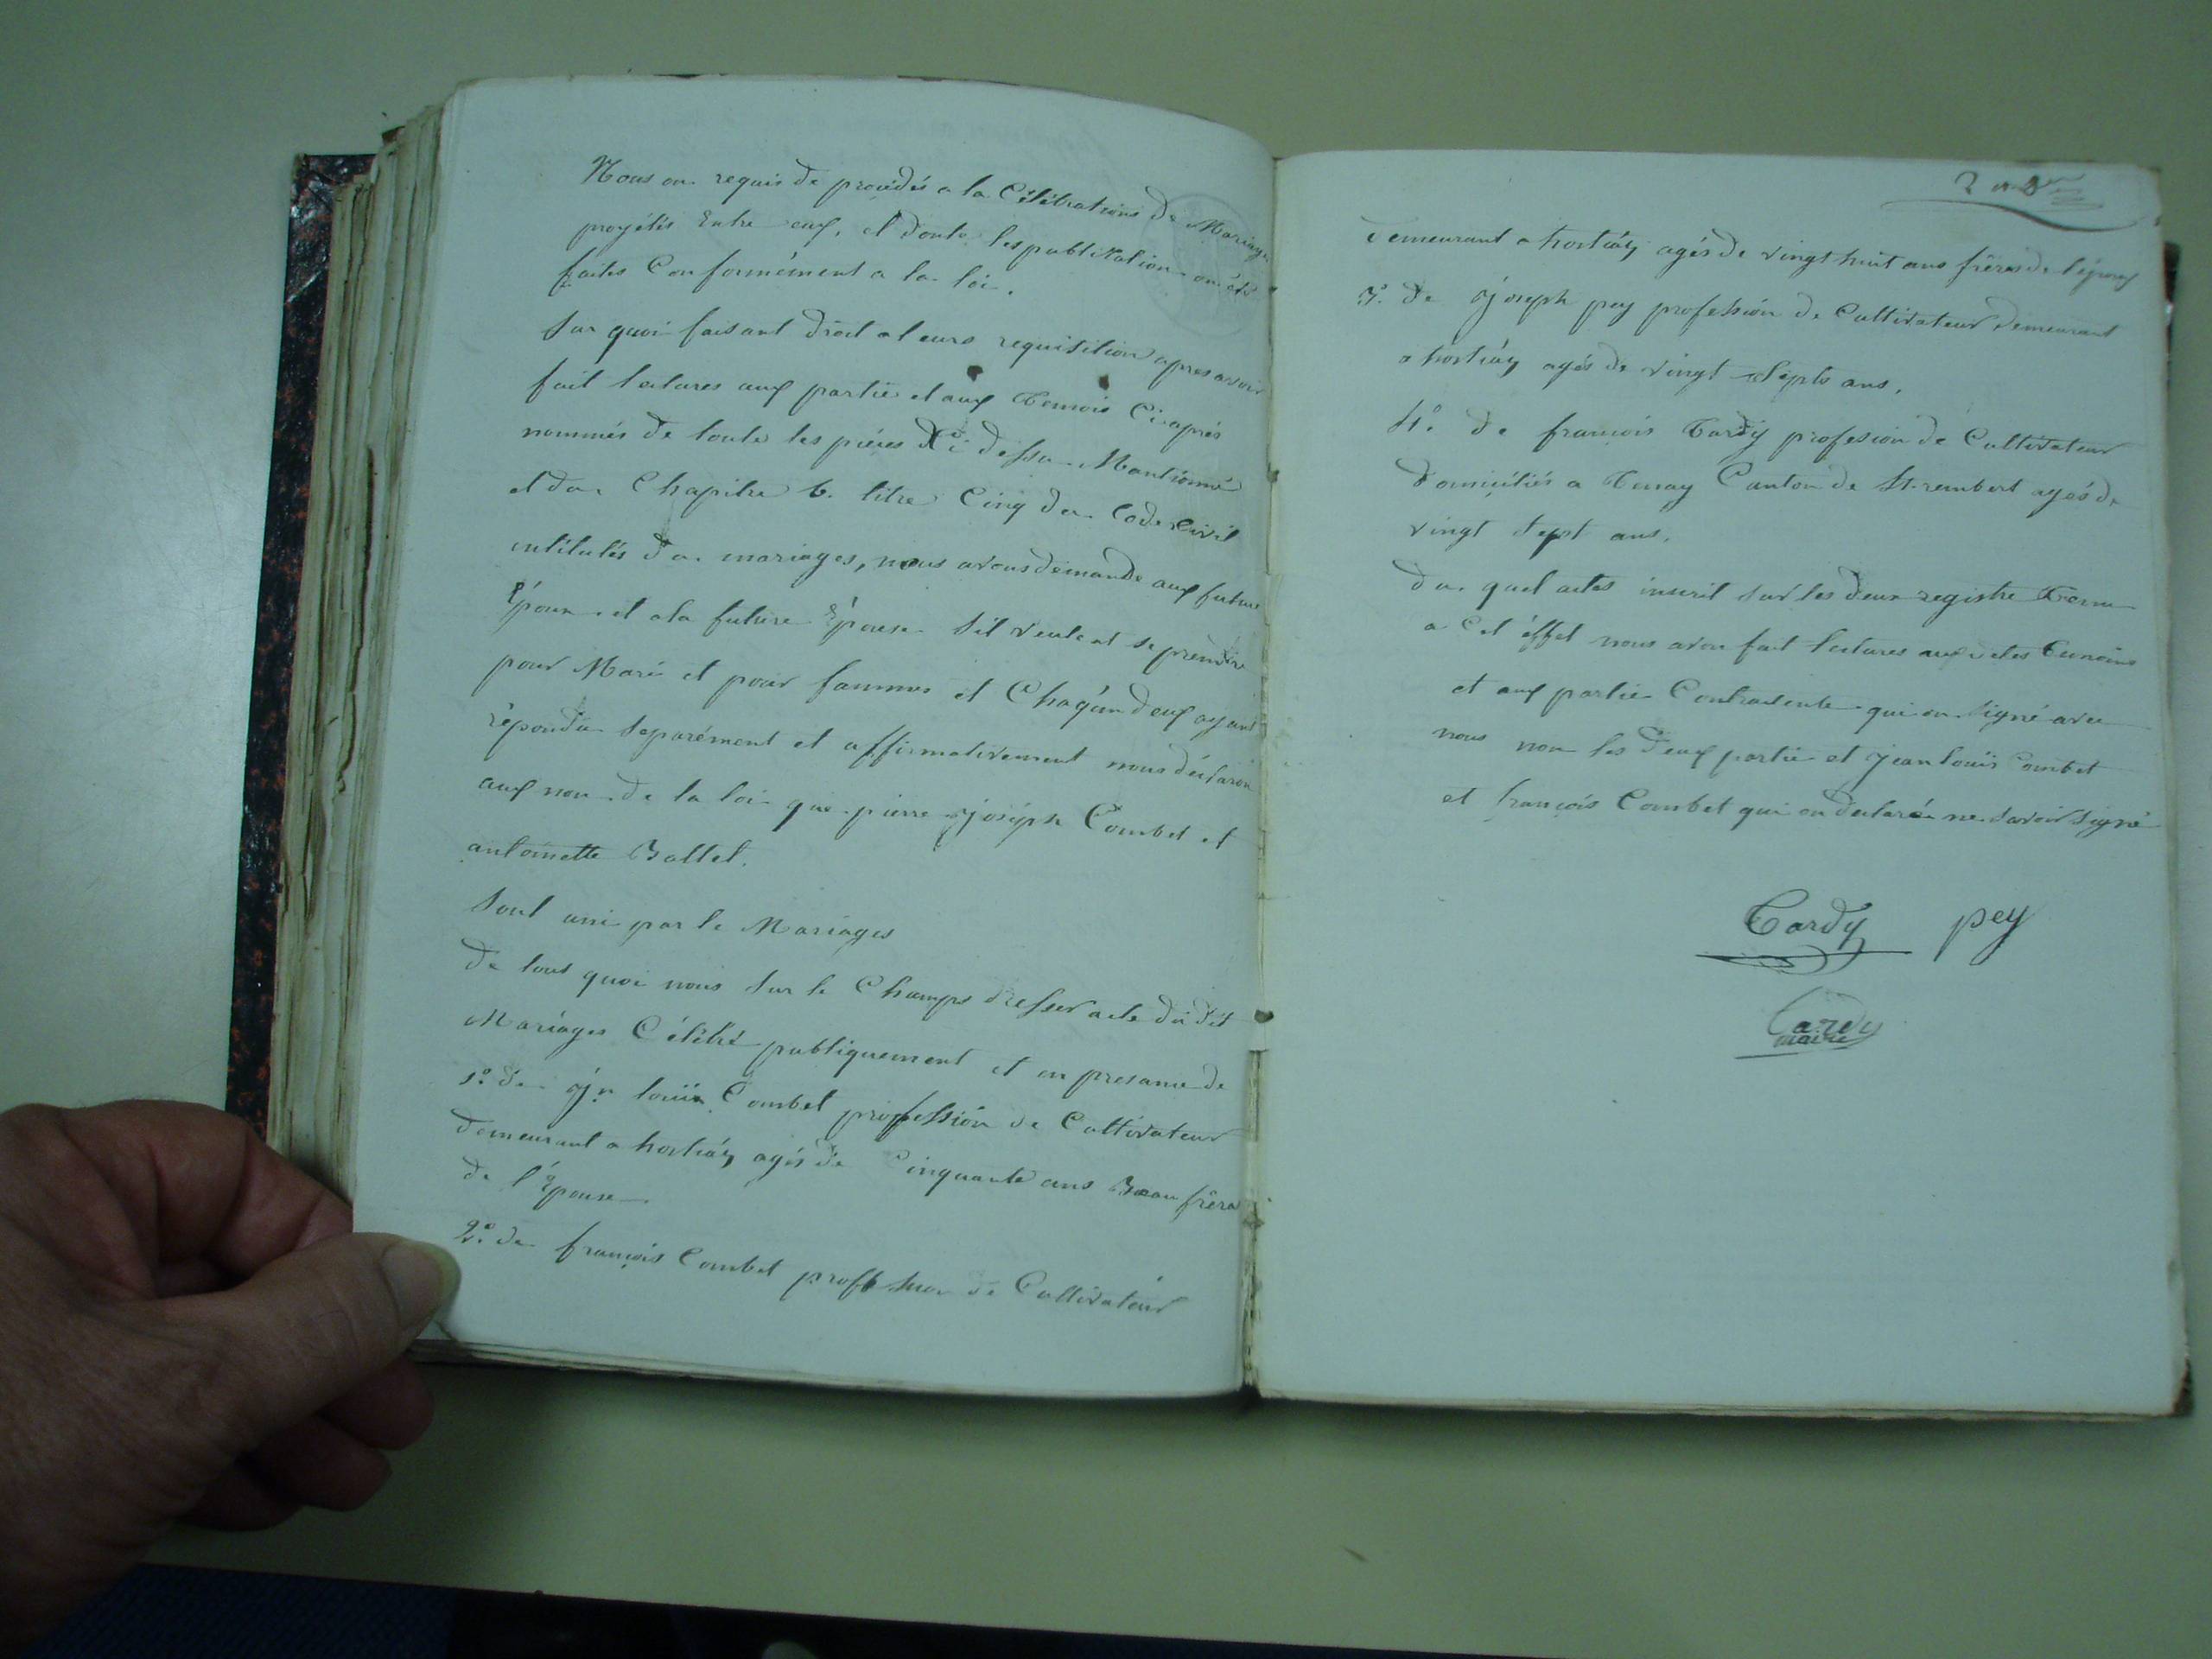 Nous on requis de procédés a la Célébrations de Mariage
projétés Entre eux, et donts les publication on été
faites Conformément a la loi.
Sur quoi faisant droit a leurs requisition apres avoir
fait lectures aux partie et aux Temois Ci-aprés
nommés de toutes les pièces Ci dessu Mantionné
et du Chapitre 6. titre Cinq du Code Civil
intitulés du mariages, nous avons demandé aux future
Époux et a la future Épouse s'il veulent se prendre
pour Mari et pour fammes et Chaqun deux ayant
répondu séparément et affirmativement nous déclaron
aux non de la loi que pierre joséph Combet et
antoinette Ballet.
Sont uni par le Mariages
de tous quoi nous sur le Champs dresser acte du dit
Mariages Célébré publiquement et en presance de
1° de jn louis Combet profession de Cultivateur
demeurant a hostiáz agés de Cinquante ans Beau frère
de l'Épouse
2° de françois Combet proffession de Cultivateur
demeurant a hostiáz agés de vingt huit ans frères de l'époux
3° de joseph pey profession de Cultivateur demeurant
a hostiáz agés de vingt septs ans.
4° de françois Tardy profesion de Cultivateur
domiciliés a Tenay Canton de St-rembert agés de
vingt sept ans.
du quel actes inscrit sur les deux registre Tenu
a Cet éffet nous avon fait lectures aux dites Temoins
et aux partie Contractente qui on signé avec
nous non les deux partie et jean louis Combet
et françois Combet qui on déclaré ne savoir signé
Tardy pey
Tardy
maire